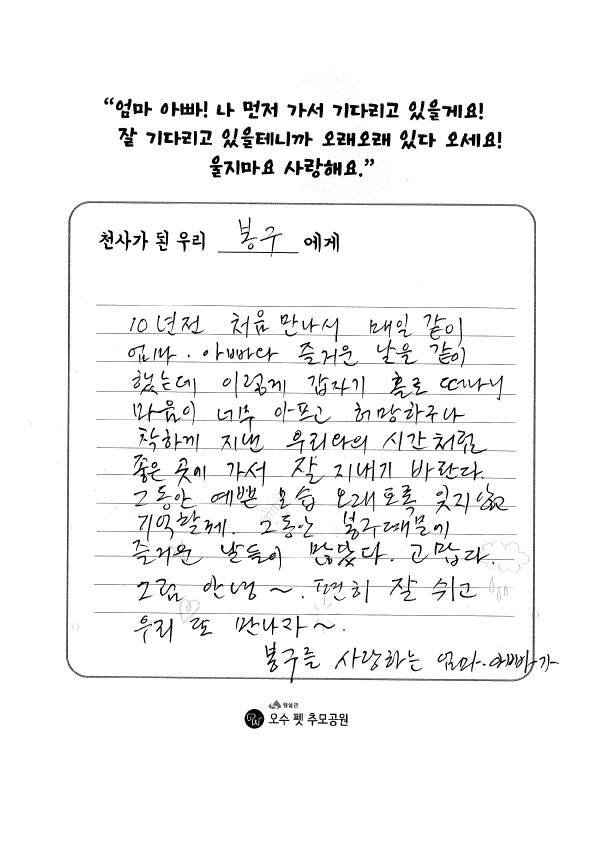 “엄마 아빠! 나 먼저 가서 기다리고 있을게요!
잘 기다리고 있을테니까 오래오래 있다 오세요!
울지마요 사랑해요.”
천사가 된 우리 봉구 에게
10년전 처음 만나서 매일 같이
엄마. 아빠다 즐거운 날을 같이
했는데 이렇게 갑자기 홀로 떠나니
마음이 너무 아프고 허망하구나
착하게 지낸 우리와의 시간처럼
좋은 곳에 가서 잘 지내기 바란다.
그동안 예쁜 모습 오래도록 잊지않고
기억할께. 그동안 봉구때문에
즐거운 날들이 많았다. 고맙다.
그럼 안녕~. 편히 잘 쉬고
우리 또 만나자~.
봉구를 사랑하는 엄마.아빠가
임실군
오수 펫 추모공원